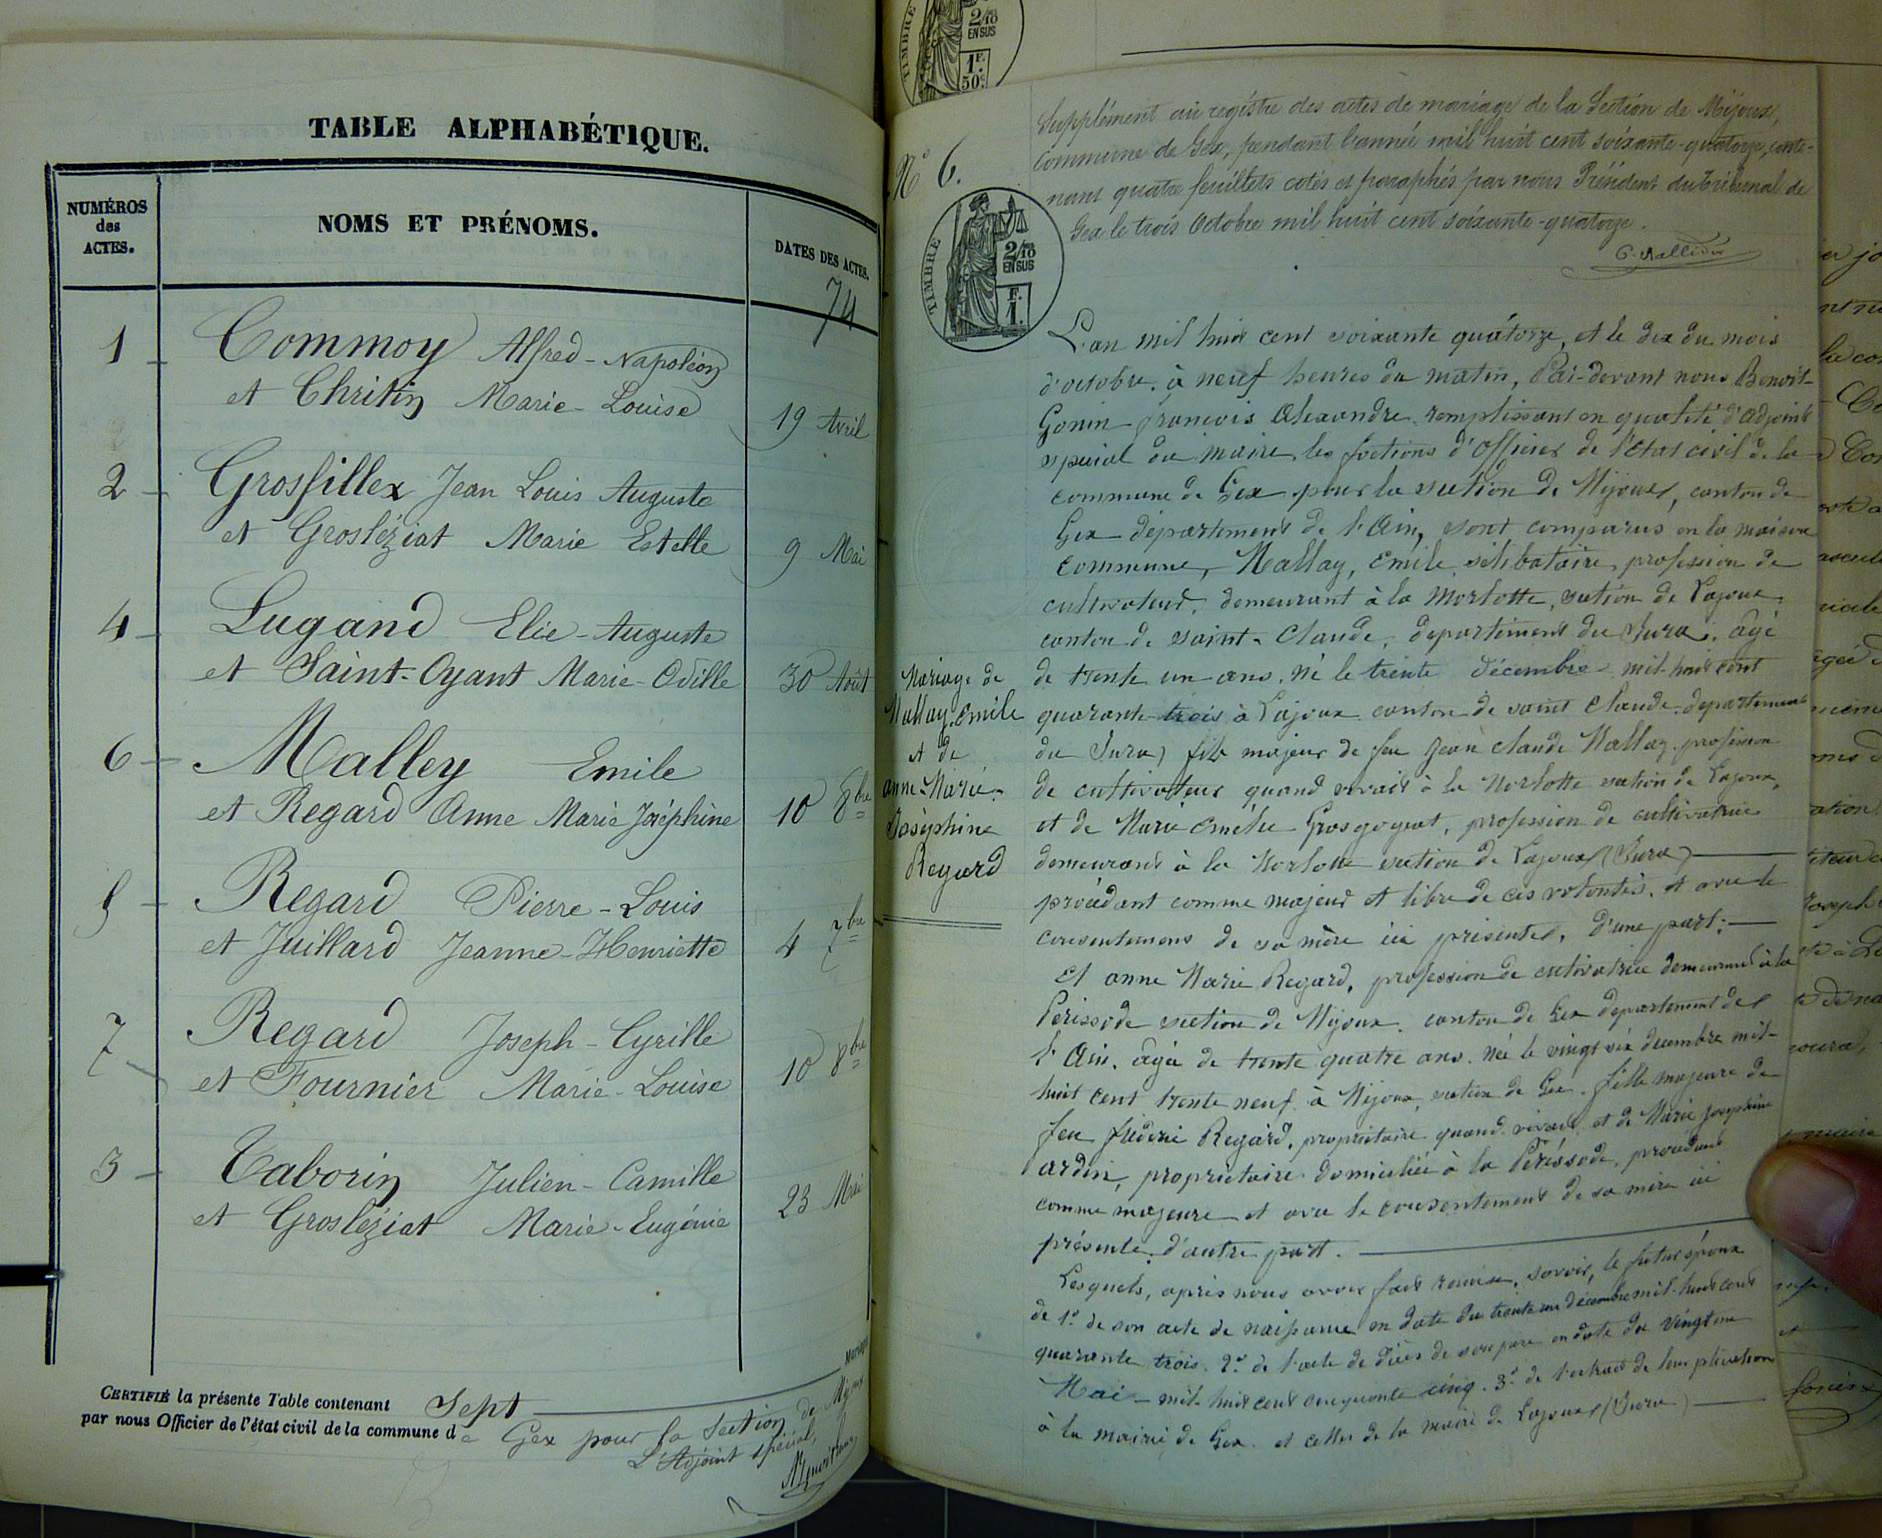 TABLE ALPHABÉTIQUE.
NUMÉROS
des
ACTES.
NOMS ET PRÉNOMS.
DATES DES ACTES.
74
1 Commoy Alfred-Napoléon
et Chritin Marie-Louise 19 Avril
2 Grosfillex Jean Louis Auguste
et Grosléziat Marie Estelle 9 Mai
4 Lugand Elie-Auguste
et Saint-Oyant Marie-Odille 30 Août
6 Malley Emile
et Regard Anne Marie Joséphine 10 8bre
5 Regard Pierre-Louis
et Juillard Jeanne-Henriette 4 7bre
7 Regard Joseph-Cyrille
et Fournier Marie-Louise 10 8bre
3 Taborin Julien-Camille
et Grosléziat Marie-Eugénie 23 Mai
CERTIFIÉ la présente Table contenant Sept Mariages
par nous Officier de l'état civil de la commune de Gex pour la Section de Mijoux
L'Adjoint spécial,
TIMBRE
2/10
EN SUS
1F.
50c.
Supplément au registre des actes de mariage de la Section de Mijoux,
Commune de Gex, pendant l'année mil huit cent soixante-quatorze, conte-
nant quatre feuillets cotés et paraphés par nous Président du Tribunal de
Gex le trois Octobre mil huit cent soixante-quatorze.
No 6.
TIMBRE
2/10
EN SUS
F.
1.
L'an mil huit cent soixante quatorze, et le dix du mois
d'octobre, à neuf heures du matin, Par-devant nous Benoit-
Gonin françois Alexandre remplissant en qualité d'adjoint
spécial du maire les fonctions d'officier de l'Etat civil de la
commune de Gex pour la section de Mijoux, canton de
Gex département de l'Ain, sont comparus en la maison
commune, Mallay, Emile, selibataire, profession de
cultivateur, demeurant à la Morlotte, section de Lajoux,
canton de saint-Claude, département du Jura, âgé
de trente un ans, né le trente décembre mil-huit cent
quarante-trois à Lajoux canton de saint Claude, département
du Jura, fils majeur de feu Jean Claude Mallay, profession
de cultivateur quand vivait à la Morlotte section de Lajoux,
et de Marie Emélie Grosgogeat, profession de cultivatrice
demeurant à la Morlotte section de Lajoux (Jura)
procédant comme majeur et libre de ces volontés, et avec le
consentement de sa mère ici présente, D'une part;
Mariage de
Mallay Emile
et de
anne-Marie-
Joséphine
Regard
Et anne Marie Regard, profession de cultivatrice demeurant à la
Périssode section de Mijoux, canton de Gex département de
l'Ain, âgée de trente quatre ans, née le vingt six décembre mil-
huit cent trente neuf à Mijoux, section de Gex, fille majeure de
feu fréderic Regard, propriétaire quand vivait et de Marie Josephine
ardin, propriétaire domiciliée à la Périssode, procédant
comme majeure et avec le consentement de sa mère ici
présente, d'autre part.
Lesquels, après nous avoir fait remise, savoir, le futur époux
de 1o de son acte de naissance en date du trente un décembre mil-huit cent
quarante trois. 2o de l'acte de décès de son père en date du vingt un
Mai mil huit cent cinquante cinq. 3o de l'extrait de leur plication
à la mairie de Gex, et celles de la mairie de Lajoux (Jura)